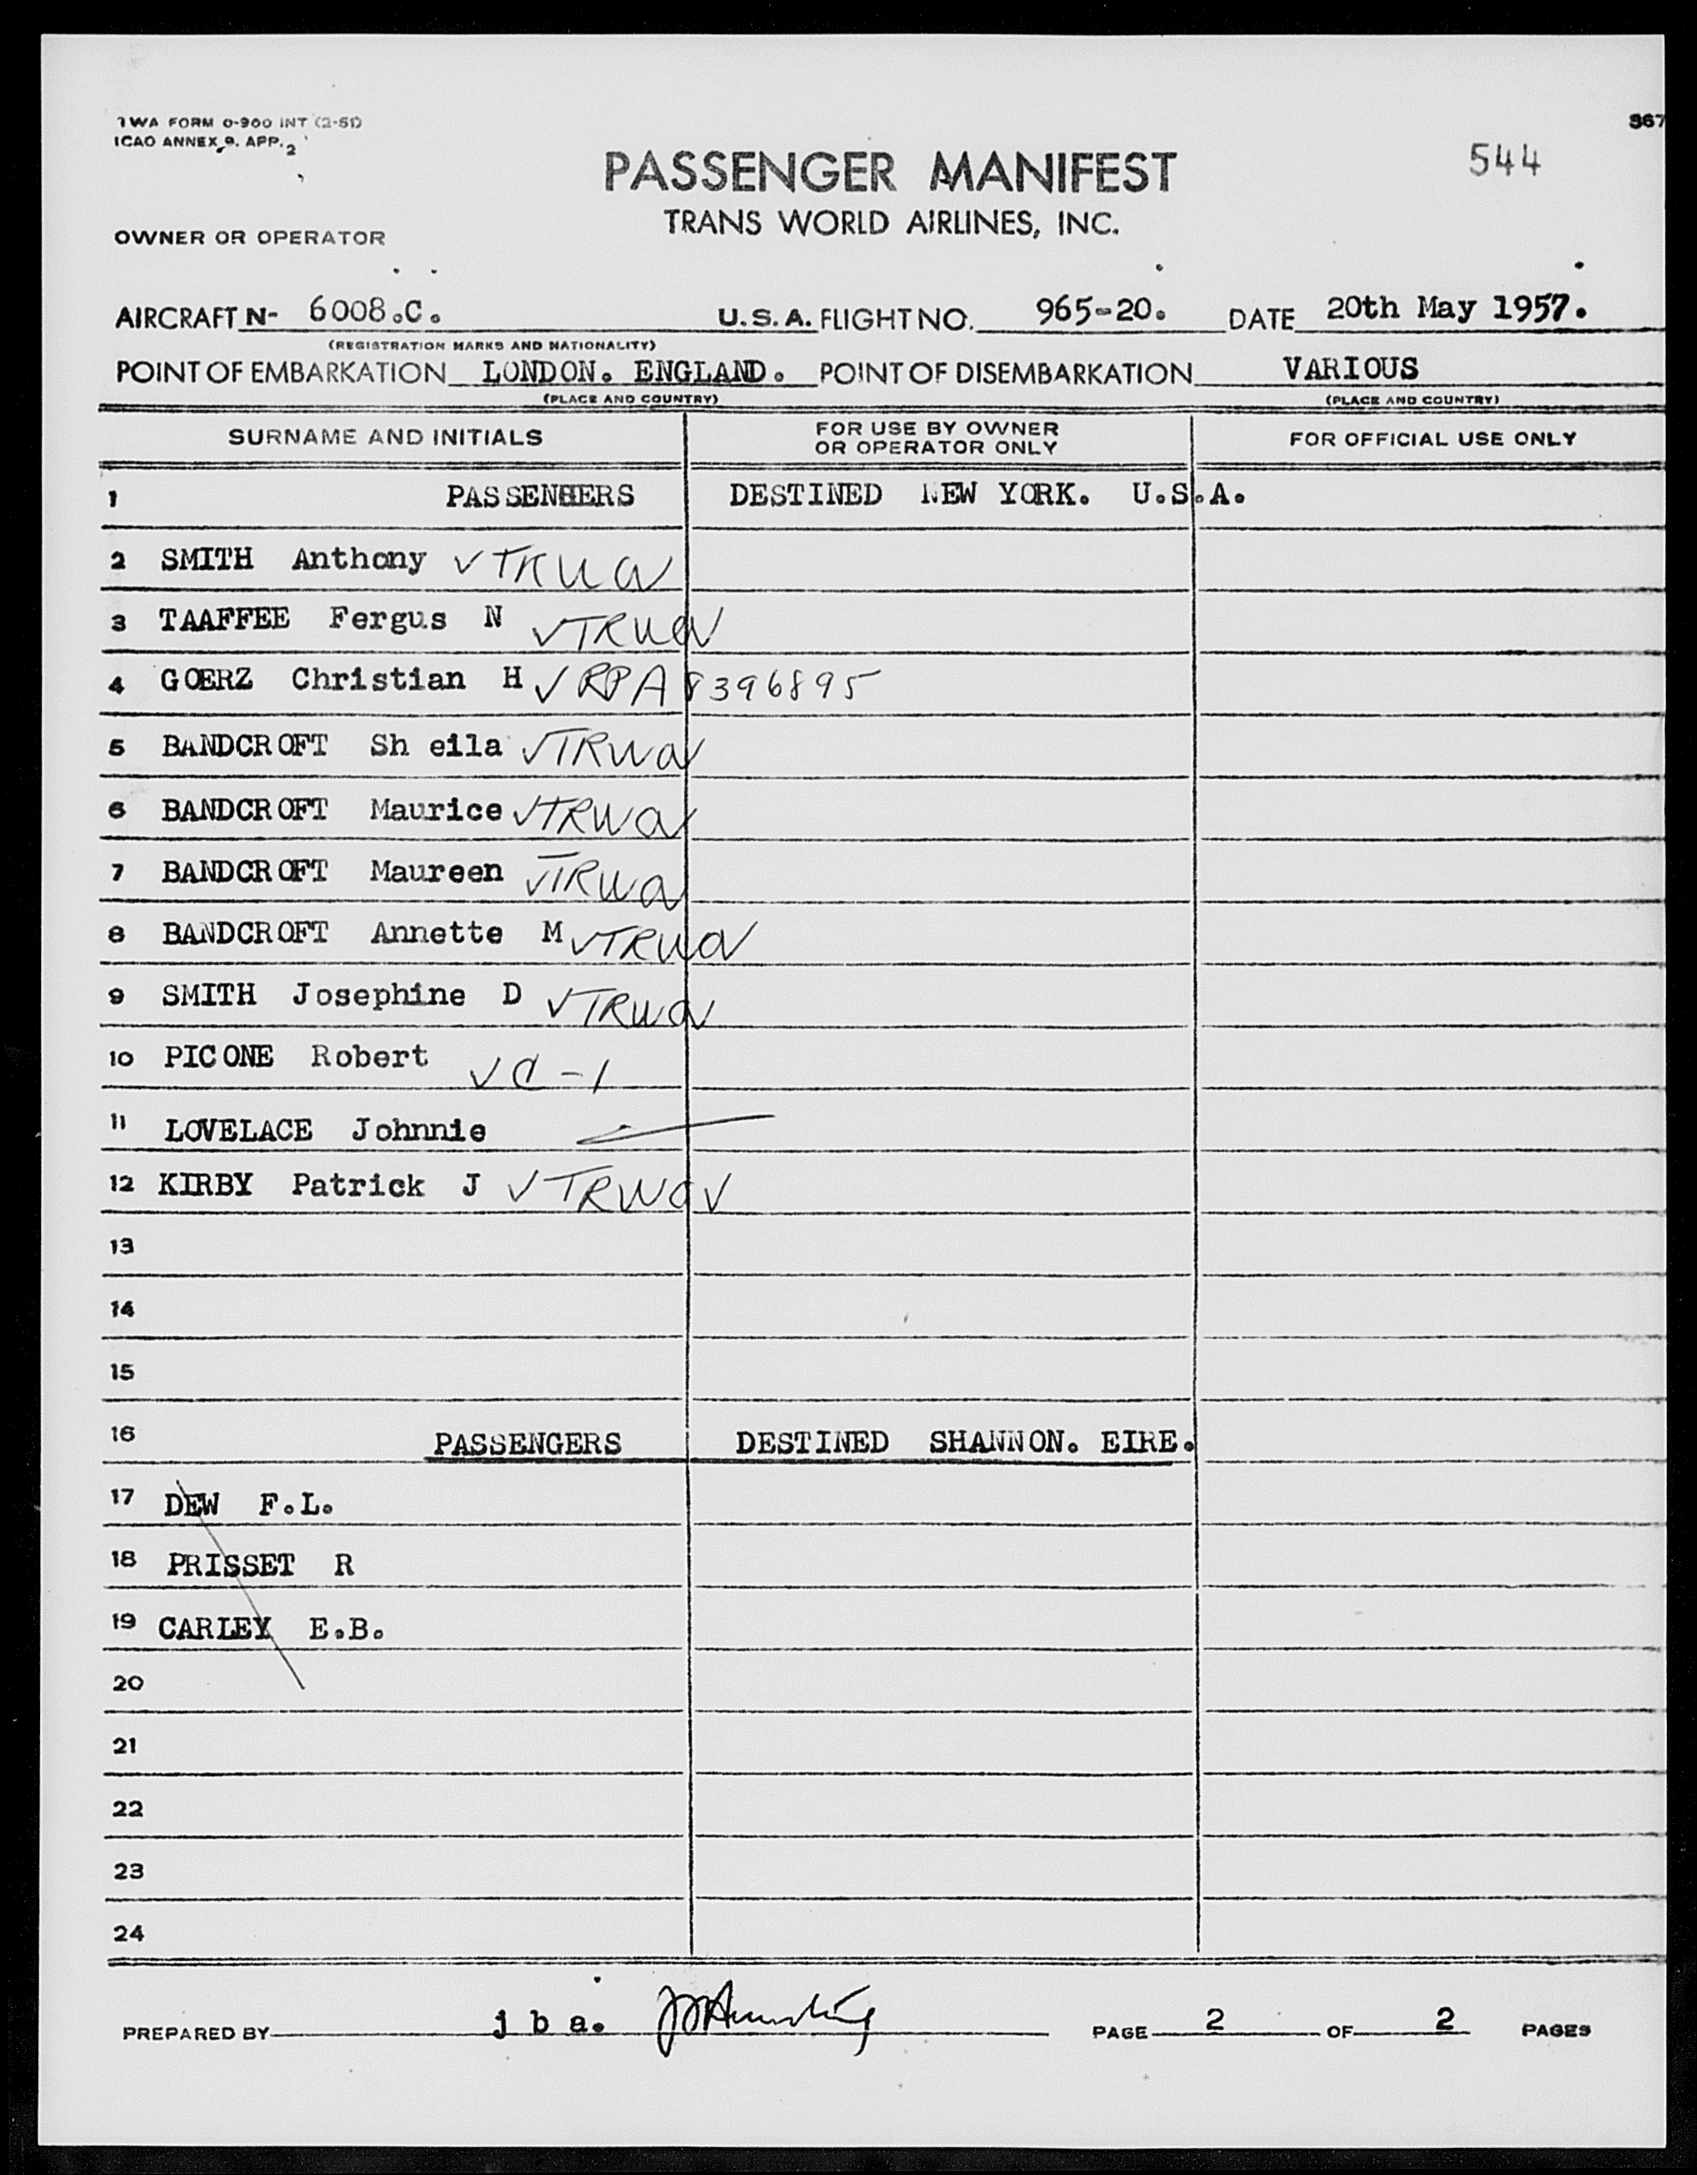 TWA FORM O-900 INT (2-51)
ICAO ANNEX 9. APP. 2
367
544
PASSENGER MANIFEST
TRANS WORLD AIRLINES, INC.
OWNER OR OPERATOR
AIRCRAFT N- 6008.C. U.S.A. FLIGHT NO. 965-20. DATE 20th May 1957.
(REGISTRATION MARKS AND NATIONALITY)
POINT OF EMBARKATION LONDON. ENGLAND. POINT OF DISEMBARKATION VARIOUS
(PLACE AND COUNTRY) (PLACE AND COUNTRY)
SURNAME AND INITIALS FOR USE BY OWNER OR OPERATOR ONLY FOR OFFICIAL USE ONLY
1 PASSENGERS DESTINED NEW YORK. U.S.A.
2 SMITH Anthony ✓ TRWOV
3 TAAFFEE Fergus N ✓ TRWOV
4 GOERZ Christian H ✓ RPA 8396895
5 BANDCROFT Sh eila ✓ TRWOV
6 BANDCROFT Maurice ✓ TRWOV
7 BANDCROFT Maureen ✓ TRWOV
8 BANDCROFT Annette M ✓ TRWOV
9 SMITH Josephine D ✓ TRWOV
10 PICONE Robert ✓ C-1
11 LOVELACE Johnnie
12 KIRBY Patrick J ✓ TRWOV
13
14
15
16 PASSENGERS DESTINED SHANNON. EIRE.
17 DEW F.L.
18 PRISSET R
19 CARLEY E.B.
20
21
22
23
24
PREPARED BY j b a. PAGE 2 OF 2 PAGES